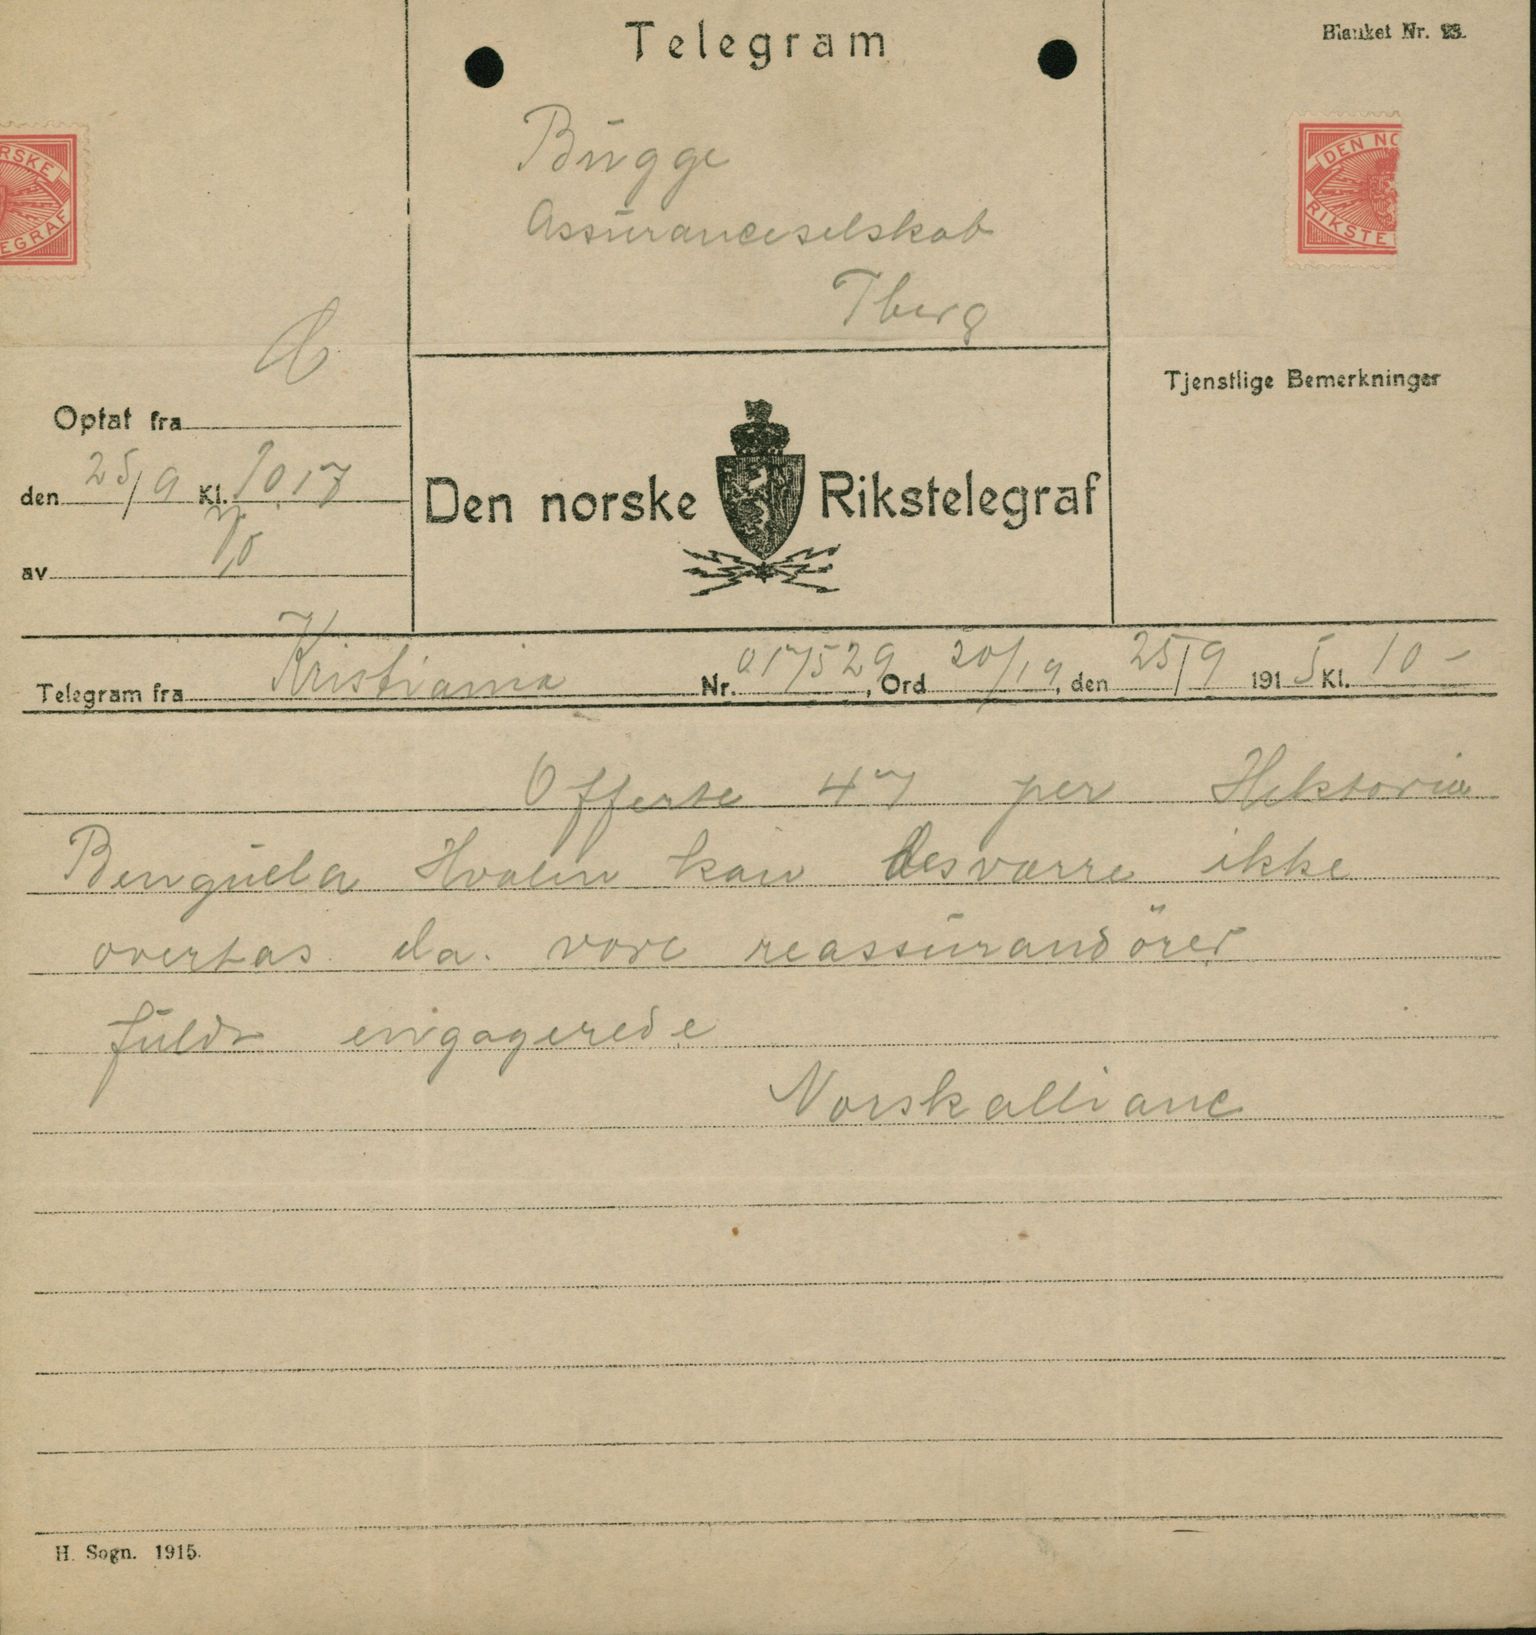 Telegram
Blanket Nr. 23.
Bugge
Assuranceselskab
Tberg
RSKE
EGRAF
DEN NO
RIKSTE
Optat fra
den 25/9 Kl. 10.17
av
Tjenstlige Bemerkninger
Den norske Rikstelegraf
Telegram fra Kristiania Nr. 017529, Ord 20/19, den 25/9 1915 Kl. 10 –
Offerte 47 per Hektoria
Benguela Hvalen kan desværre ikke
overtas da vore reassurandörer
fuldt engagerede
Norskallianc
H. Sogn. 1915.